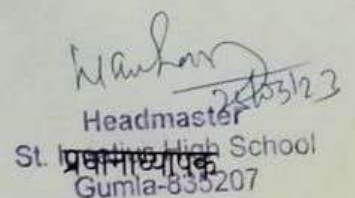 25/03/23
Headmaster
St. Ignatius High School
प्रधानाध्यापक
Gumla-835207